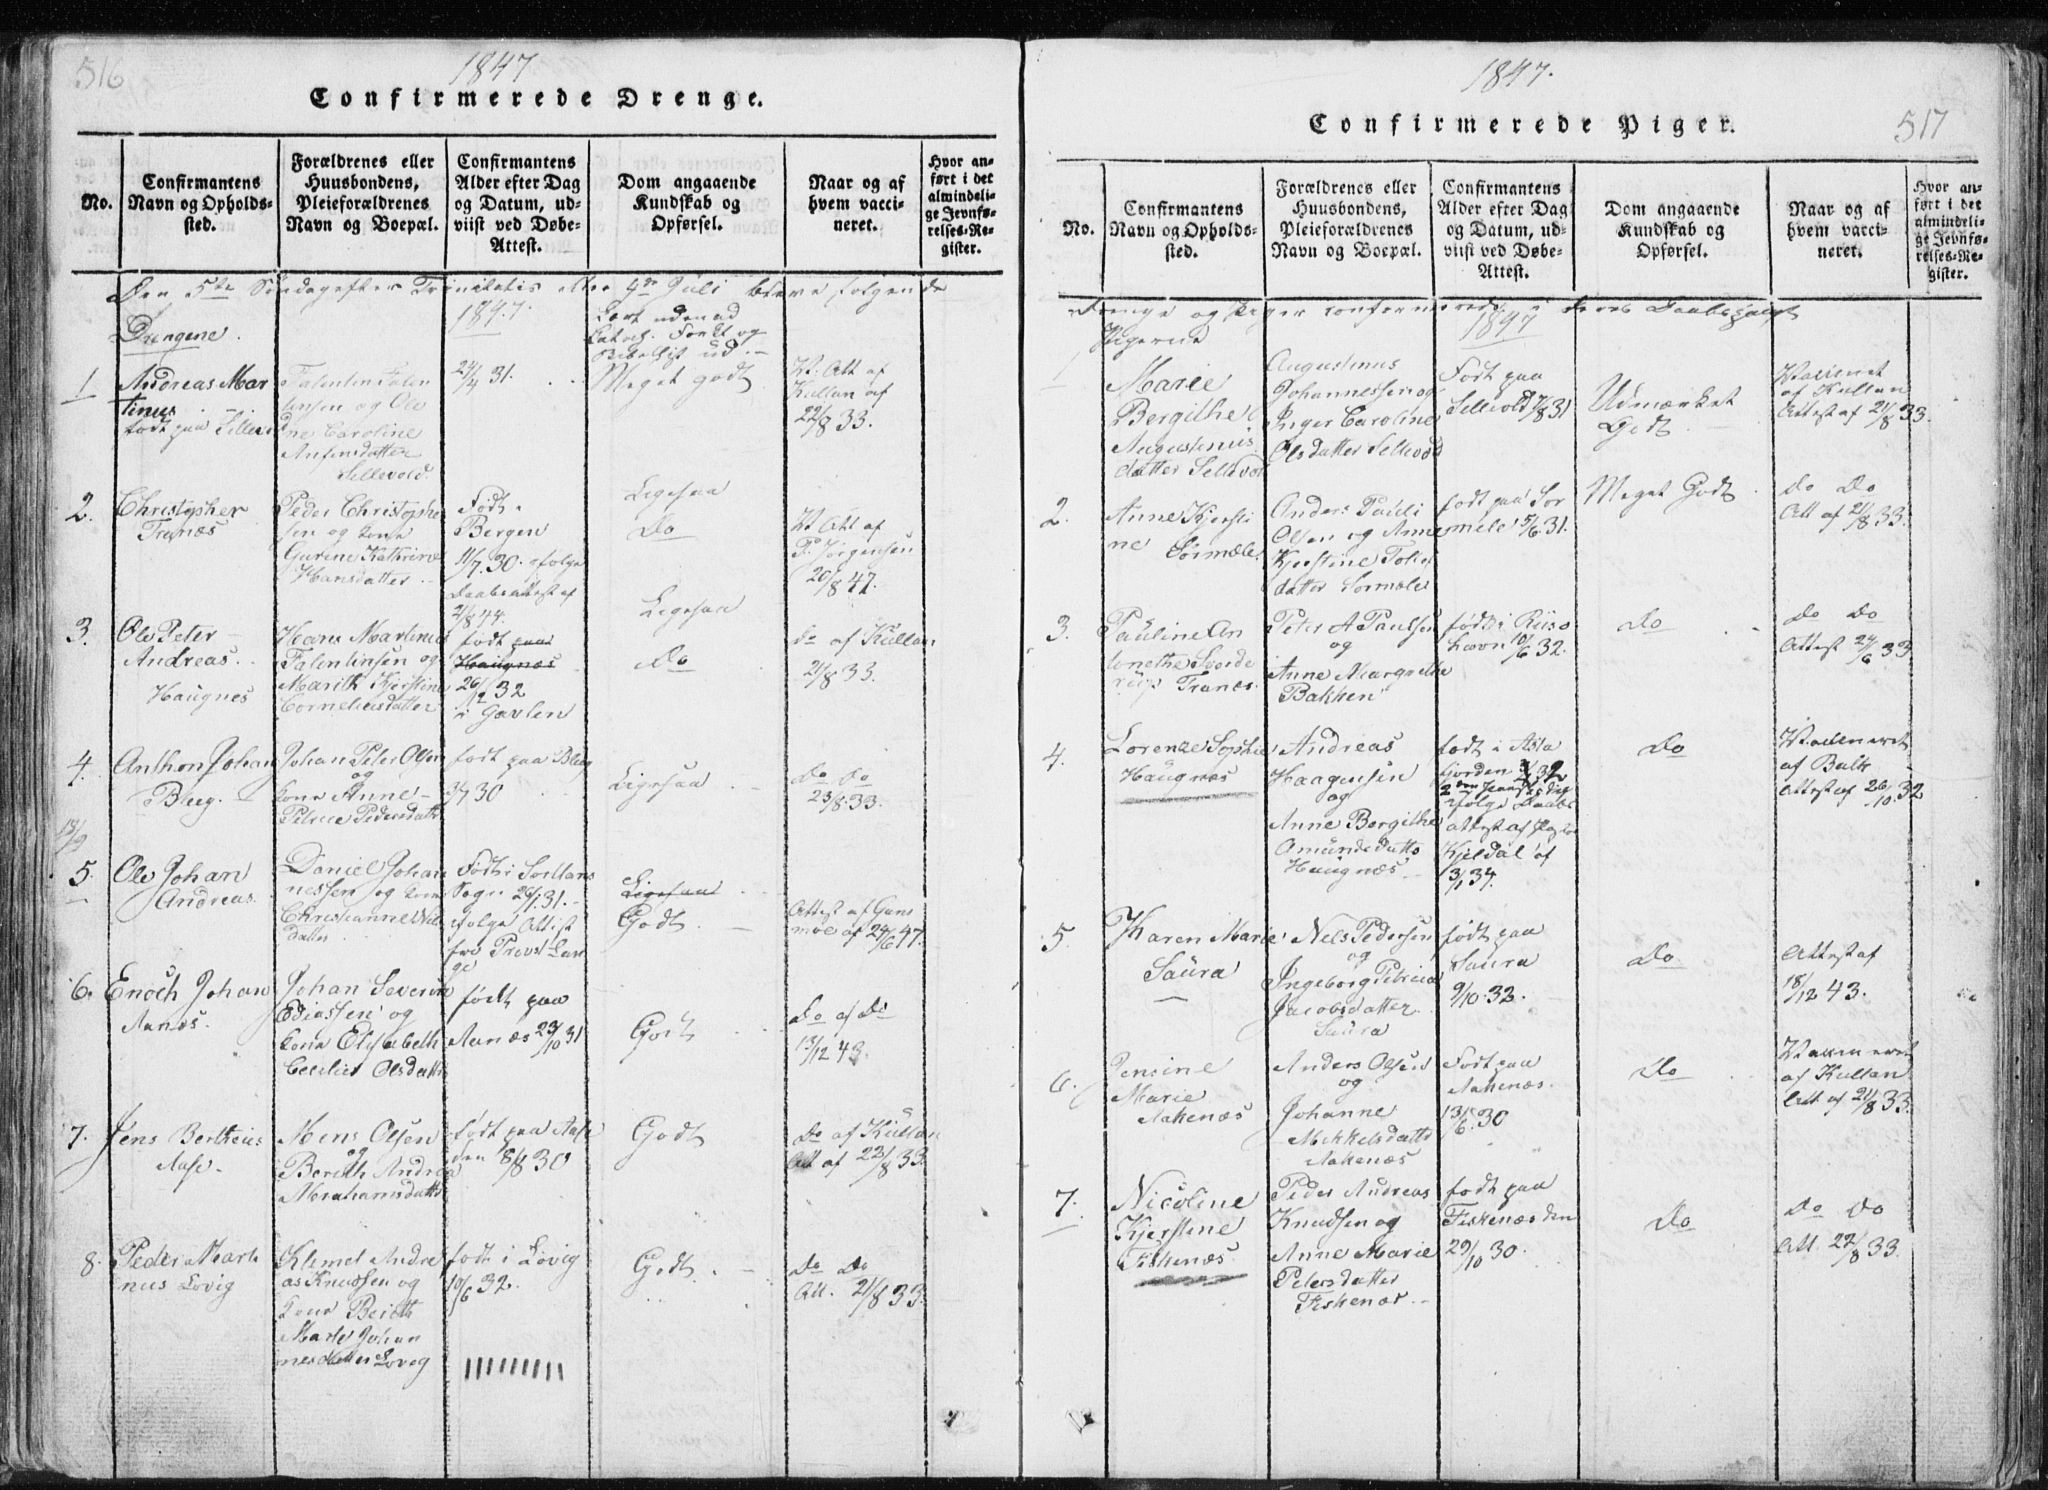 516
1847
Confirmerede Drenge.
No.
Confirmantens
Navn og Opholds-
sted.
Forældrenes eller
Huusbondens,
Pleieforældrenes
Navn og Boepæl.
Confirmantens
Alder efter Dag
og Datum, ud-
viist ved Døbe-
Attest.
Dom angaaende
Kundskab og
Opførsel.
Naar og af
hvem vacci-
neret.
Hvor an-
ført i det
almindeli-
ge Jevnfø-
relses-Re-
gister.
Den 5te Søndag efter Trinitatis eller 4de Juli bleve følgende
Drengene.
1847.
Lært udenad
Catech. Forkl og
Bibelhist ud.
1
Andreas Mar
tinus
født paa Sillevold
Falentin Falen
tinsen og Ole
ne Caroline
Antonsdatter
Sellevold.
24/4 31.
Meget godt
V. Att af
Kullan af
22/8 33.
2.
Christopher
Tranæs
Peder Christophe
sen og Kone
Gurine Kathrine
Hansdatter.
Født i
Bergen
11/7.30. ifølge
Daabsattest af
2/8 44.
Ligesaa
Do
V. Att af
P. Jörgensen
20/8 47.
3.
Ole Peter
Andreas.
Haugnes
Hans Martinus
Falentinsen og
Marith Kjerstine
Corneliusdatter
født paa
Haugnæs
26/12 32
i Gavlen
Ligesaa
Do
do af Kullan
21/8 33.
4.
Anthon Johan
Bleeg.
Johan Peter Olsen
og
Kone Anne
Petrice Pedersdatt
født paa Bleeg
3/7 30
Ligesaa
Do do
23/8.33.
13/9
5.
Ole Johan
Andreas.
Daniel Johan
nessen og Kone
Christianne Niel
datter
Født i Sortlans
Sogn 26/1 31.
ifølge Attist
fra Provst Lan
ge
Ligesaa
Godt
Attest af Guns
moe af 24/6 47.
6.
Enoch Johan
Aanæs.
Johan Severin
Ediassen og
Kone Elisabeth
Cecilie Olsdatt
født paa
Aanæs 23/10 31
Godt
Do af Do
13/12 43.
7.
Jens Bertheus
Aase.
Mons Olsen
og
Berith Andrea
Abrahamsdatt
født paa Aase
den 18/8 30
Godt
Do af Kullan
Att af 22/8 33.
8.
Peder Marti
nus Lovig
Klemet Andre
as Knudsen og
Kone Berith
Marte Johan
nesdatter Lovig
født i Lovig
10/6 32.
Godt.
Do Do
Att. 21/8 33.
1847.
517
Confirmerede Piger.
No.
Confirmantens
Navn og Opholds-
sted.
Forældrenes eller
Huusbondens,
Pleieforældrenes
Navn og Boepæl.
Confirmantens
Alder efter Dag
og Datum, ud-
viist ved Døbe-
Attest.
Dom angaaende
Kundskab og
Opførsel.
Naar og af
hvem vacci-
neret.
Hvor an-
ført i det
almindeli-
ge Jevnfø-
relses-Re-
gister.
Drenge og Piger confirmerede i deres Daabspagt
Pigerne
1847
1
Maree
Bergithe
Augustinus
datter Sellevol
Augustinus
Johannessen og
Inger Caroline
Olsdatter Sellevold
Født paa
Sellevold 7/8 31
Udmærket
Godt.
Vacineret
af Kullan
Attest af 21/8 33.
2.
Anne Kjersti
ne Sörmæle.
Anders Pauli
Olsen og Anne
Kjerstine Tolles
datter Sormele
født paa Sor
mele 5/6 31.
Meget Godt.
do Do
Att af 21/8 33.
3.
Pauline An
tonethe Sverde
rup Tranæs.
Peter A Paulsen
og
Anne Margrethe
Bakken
født i Riiso
havn 10/6 32.
Do
Do Do
Attest 24/6 33
4.
Lorenze Sophie
Haugnæs
Andreas
Haagensen
og
Anne Bergithe
Amundsdatte
Haugnæs.
født i Asta
fjorden 32
ifølge Daabs
attest af Pastor
Kjeldal af
3/1 34.
Do
Vacineret
af Balk
Attest af 26/10.32
5.
Karen Marie
Saura
Nels Pedersen
og
Ingeborg Petricia
Jacobsdatter
Saura
født paa
Saura
9/10.32.
Do
Attest af
18/12 43.
6.
Pensine
Marie
Aakenæs
Anders Olsen
og
Johanne
Mikkelsdatte
Aakenæs
Født paa
Aakenæs.
13/6.30
Do
Vacineret
af Kullan
Att af 21/8 33.
7.
Nicoline
Kjerstine
Fiskenæs.
Peder Andreas
Knudsen og
Anne Marie
Petersdatter
Fiskenæs.
født paa
Fiskenæs den
29/10 30.
Do
Do Do
Att. 22/8 33.